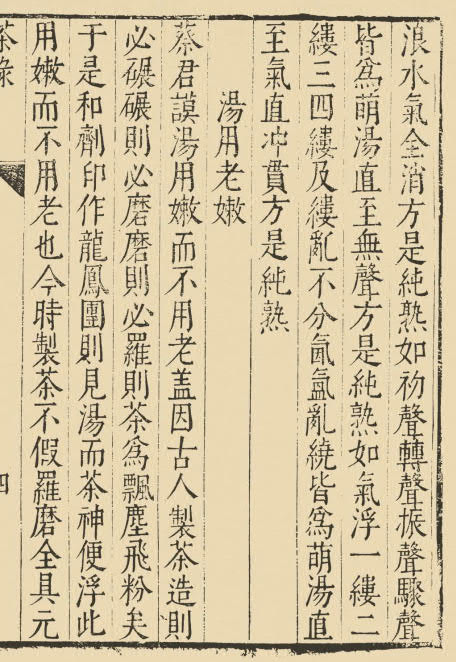 浪水氣全消方是純熟如初聲轉聲振聲驟聲
皆爲萌湯直至無聲方是純熟如氣浮一縷二
縷三四縷及縷亂不分氤氳亂繞皆爲萌湯直
至氣直冲貫方是純熟
湯用老嫩
蔡君謨湯用嫩而不用老盖因古人製茶造則
必碾碾則必磨磨則必羅則茶爲飄塵飛粉矣
于是和劑印作龍鳳團則見湯而茶神便浮此
用嫩而不用老也今時製茶不假羅磨全具元
茶錄
四